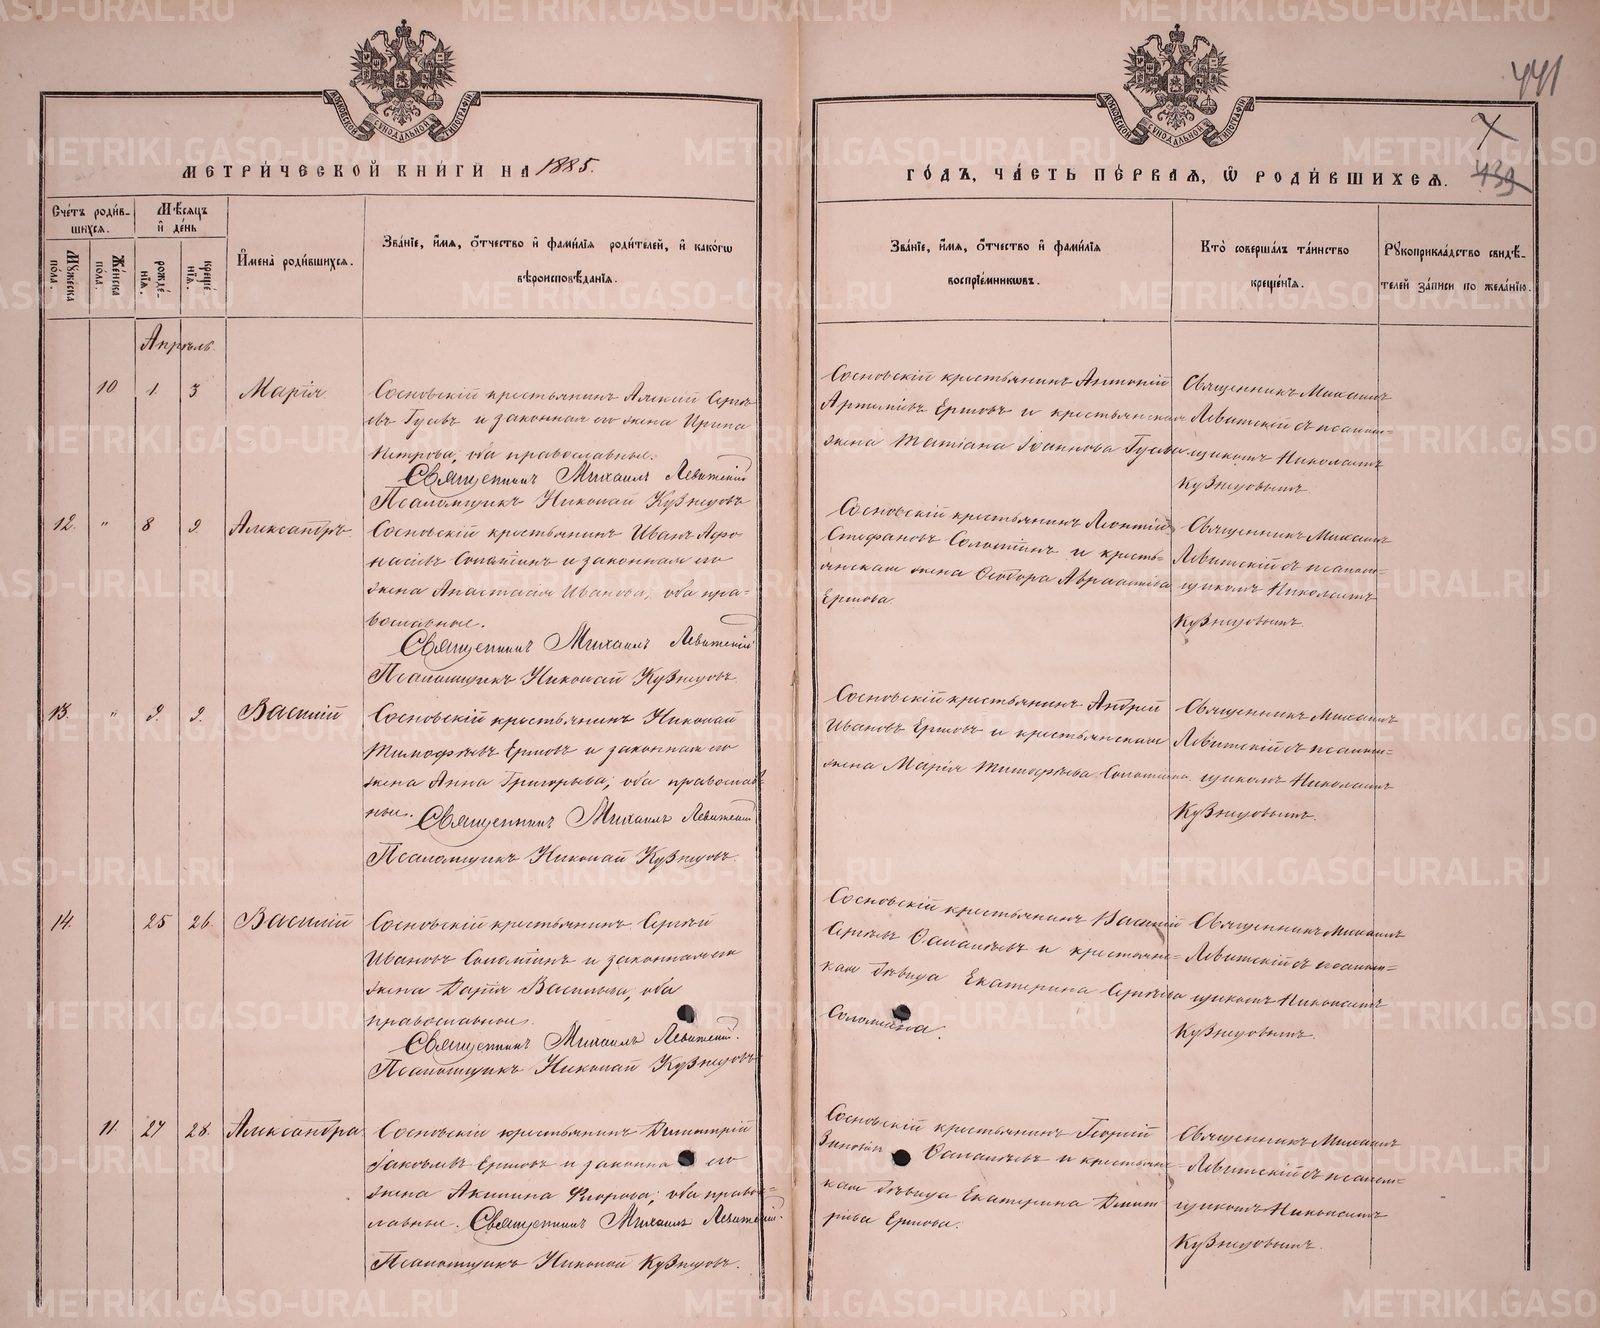 441
439
МОСКОВСКОЙ СѴНОДАЛЬНОЙ ТИПОГРАФІИ
МОСКОВСКОЙ СѴНОДАЛЬНОЙ ТИПОГРАФІИ
МЕТРИ́ЧЕСКОЙ КНИ́ГИ НА 1885.
ГО́ДЪ, ЧА́СТЬ ПЕ́РВАѦ, Ѡ РОДИ́ВШИХСѦ.
Сче́тъ роди́в-
шихсѧ.
Мꙋжеска по́ла.
Же́нска по́ла.
Мѣ́сѧцъ
и҆ де́нь
рожде́-
нїѧ.
креще́-
нїѧ.
И҆мена̀ роди́вшихсѧ.
Зва́нїе, и҆́мѧ, ѻ҆́тчество и҆ фами́лїѧ роди́телей, и҆ како́гѡ
вѣроисповѣ́данїѧ.
Зва́нїе, и҆́мѧ, ѻ҆́тчество и҆ фами́лїѧ
воспрїе́мникѡвъ.
Кто̀ соверша́лъ та́инство
креще́нїѧ.
Рꙋкоприкла́дство свидѣ́-
телей за́писи по жела́нїю.
Апрѣль
10 1. 3 Марія
Сосновскій крестьянинъ Алексій Сергѣ-
евъ Гусевъ и законная его жена Ирина
Петрова, оба православные.
Священникъ Михаилъ Левитскій
Псаломщикъ Николай Кузнецовъ
Сосновскій крестьянинъ Антоній
Артемьевъ Ершовъ и крестьянская
жена Татіана Іоаннова Гусева
Священникъ Михаилъ
Левитскій съ псалом-
щикомъ Николаемъ
Кузнецовымъ
12. " 8 9. Александръ
Сосновскій крестьянинъ Иванъ Афо-
насьевъ Соломеинъ и законная его
жена Анастасія Иванова, оба пра-
вославные.
Священникъ Михаилъ Левитскій
Псаломщикъ Николай Кузнецовъ
Сосновскій крестьянинъ Леонтій
Стефановъ Соломеинъ и кресть-
янская жена Ѳеодора
Ершова.
Священникъ Михаилъ
Левитскій съ псалом-
щикомъ Николаемъ
Кузнецовымъ.
13. " 9. 9. Василій
Сосновскій крестьянинъ Николай
Тимофѣевъ Ершовъ и законная его
жена Анна Григорьева, оба православ-
ные. Священникъ Михаилъ Левитскій
Псаломщикъ Николай Кузнецовъ.
Сосновскій крестьянинъ Андрей
Ивановъ Ершовъ и крестьянская
жена Марія Тимофѣева Соломеина.
Священникъ Михаилъ
Левитскій съ псалом-
щикомъ Николаемъ
Кузнецовымъ.
14. 25 26. Василій
Сосновскій крестьянинъ Сергѣй
Ивановъ Соломеинъ и законная его
жена Дарія Васильева, оба
православные.
Священникъ Михаилъ Левитскій.
Псаломщикъ Николай Кузнецовъ
Сосновскій крестьянинъ Василій
Сергѣевъ и крестьянс-
кая дѣвица Екатерина Сергѣева
Соломеина.
Священникъ Михаилъ
Левитскій съ псалом-
щикомъ Николаемъ
Кузнецовымъ.
11. 27 28. Александра
Сосновскій крестьянинъ Димитрій
Іаковлевъ Ершовъ и законна его
жена Акилина оба право-
славные. Священникъ Михаилъ Левитскій.
Псаломщикъ Николай Кузнецовъ.
Сосновскій крестьянинъ Георгій
и крестьянс-
кая дѣвица Екатерина Димит-
ріева Ершова.
Священникъ Михаилъ
Левитскій съ псалом-
щикомъ Николаемъ
Кузнецовымъ.
METRIKI.GASO-URAL.RU